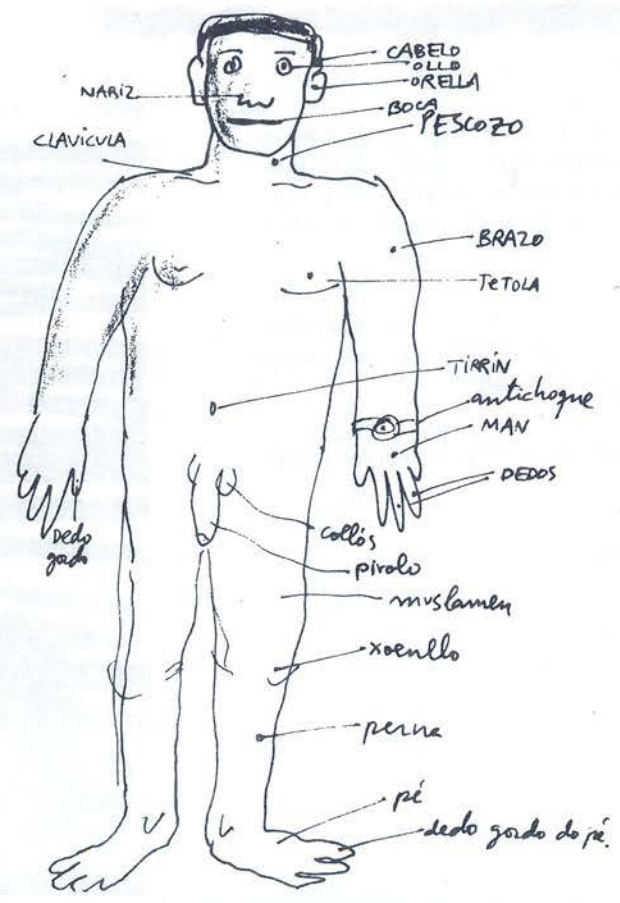 CABELO
OLLO
ORELLA
NARIZ
BOCA
PESCOZO
CLAVICULA
BRAZO
TETOLA
TIRRÍN
antichoque
MAN
DEDOS
Dedo
gordo
collós
pirolo
muslamen
xoenllo
perna
pé
dedo gordo do pé.